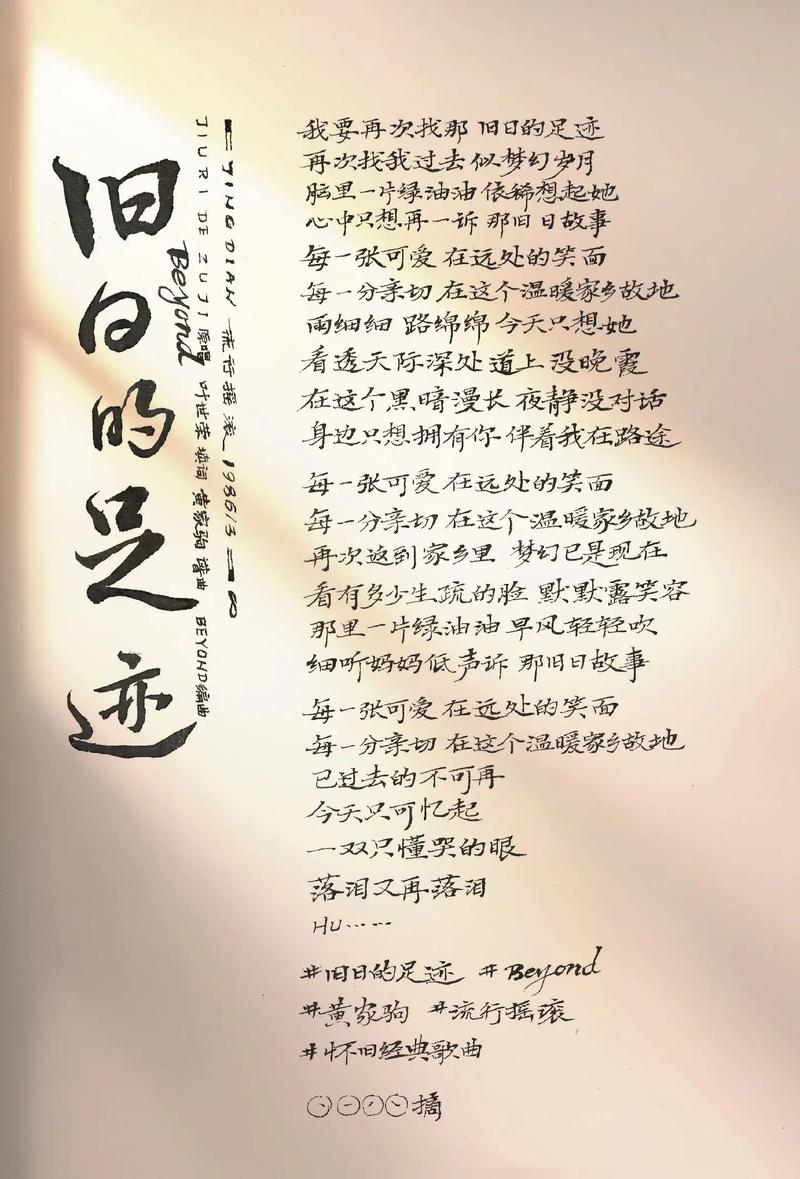 旧日的足迹
JIU RI DE ZUJI 原唱 Beyond 叶世荣 填词 黄家驹 谱曲 BEYOND编曲
JING DIAN 流行摇滚 1986/3
我要再次找那 旧日的足迹
再次找我过去 似梦幻岁月
脑里一片绿油油 依稀想起她
心中只想再一诉 那旧日故事
每一张可爱 在远处的笑面
每一分亲切 在这个温暖家乡故地
雨细细 路绵绵 今天只想她
看透天际深处 道上没晚霞
在这个黑暗漫长 夜静没对话
身边只想拥有你 伴着我在路途
每一张可爱 在远处的笑面
每一分亲切 在这个温暖家乡故地
再次返到家乡里 梦幻已是现在
看有多少生疏的脸 默默露笑容
那里一片绿油油 早风轻轻吹
细听妈妈低声诉 那旧日故事
每一张可爱 在远处的笑面
每一分亲切 在这个温暖家乡故地
已过去的不可再
今天只可忆起
一双只懂哭的眼
落泪又再落泪
HU……
#旧日的足迹 #Beyond
#黄家驹 #流行摇滚
#怀旧经典歌曲
摘